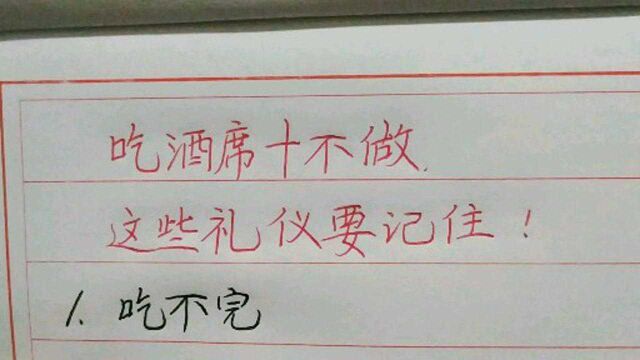 吃酒席十不做
这些礼仪要记住！
1. 吃不完